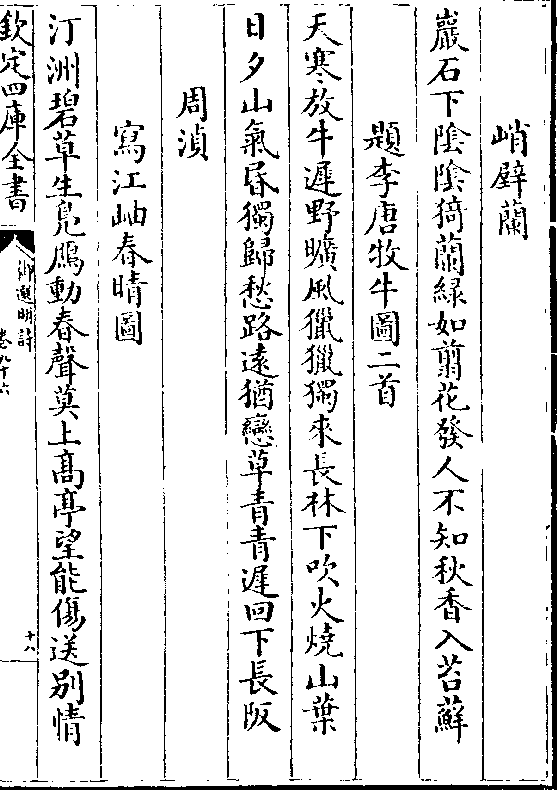 峭壁蘭
巖石下陰陰猗蘭緑如翦花發人不知秋香入苔蘚
題李唐牧牛圖二首
天寒放牛遲野曠風獵獵獨來長林下吹火燒山葉
日夕山氣昏獨歸愁路遠猶戀草青青遲回下長阪
周湞
寫江岫春晴圖
汀洲碧草生鳬鴈動春聲莫上髙亭望能傷送别情
欽定四庫全書
御選明詩
卷九十六
十八